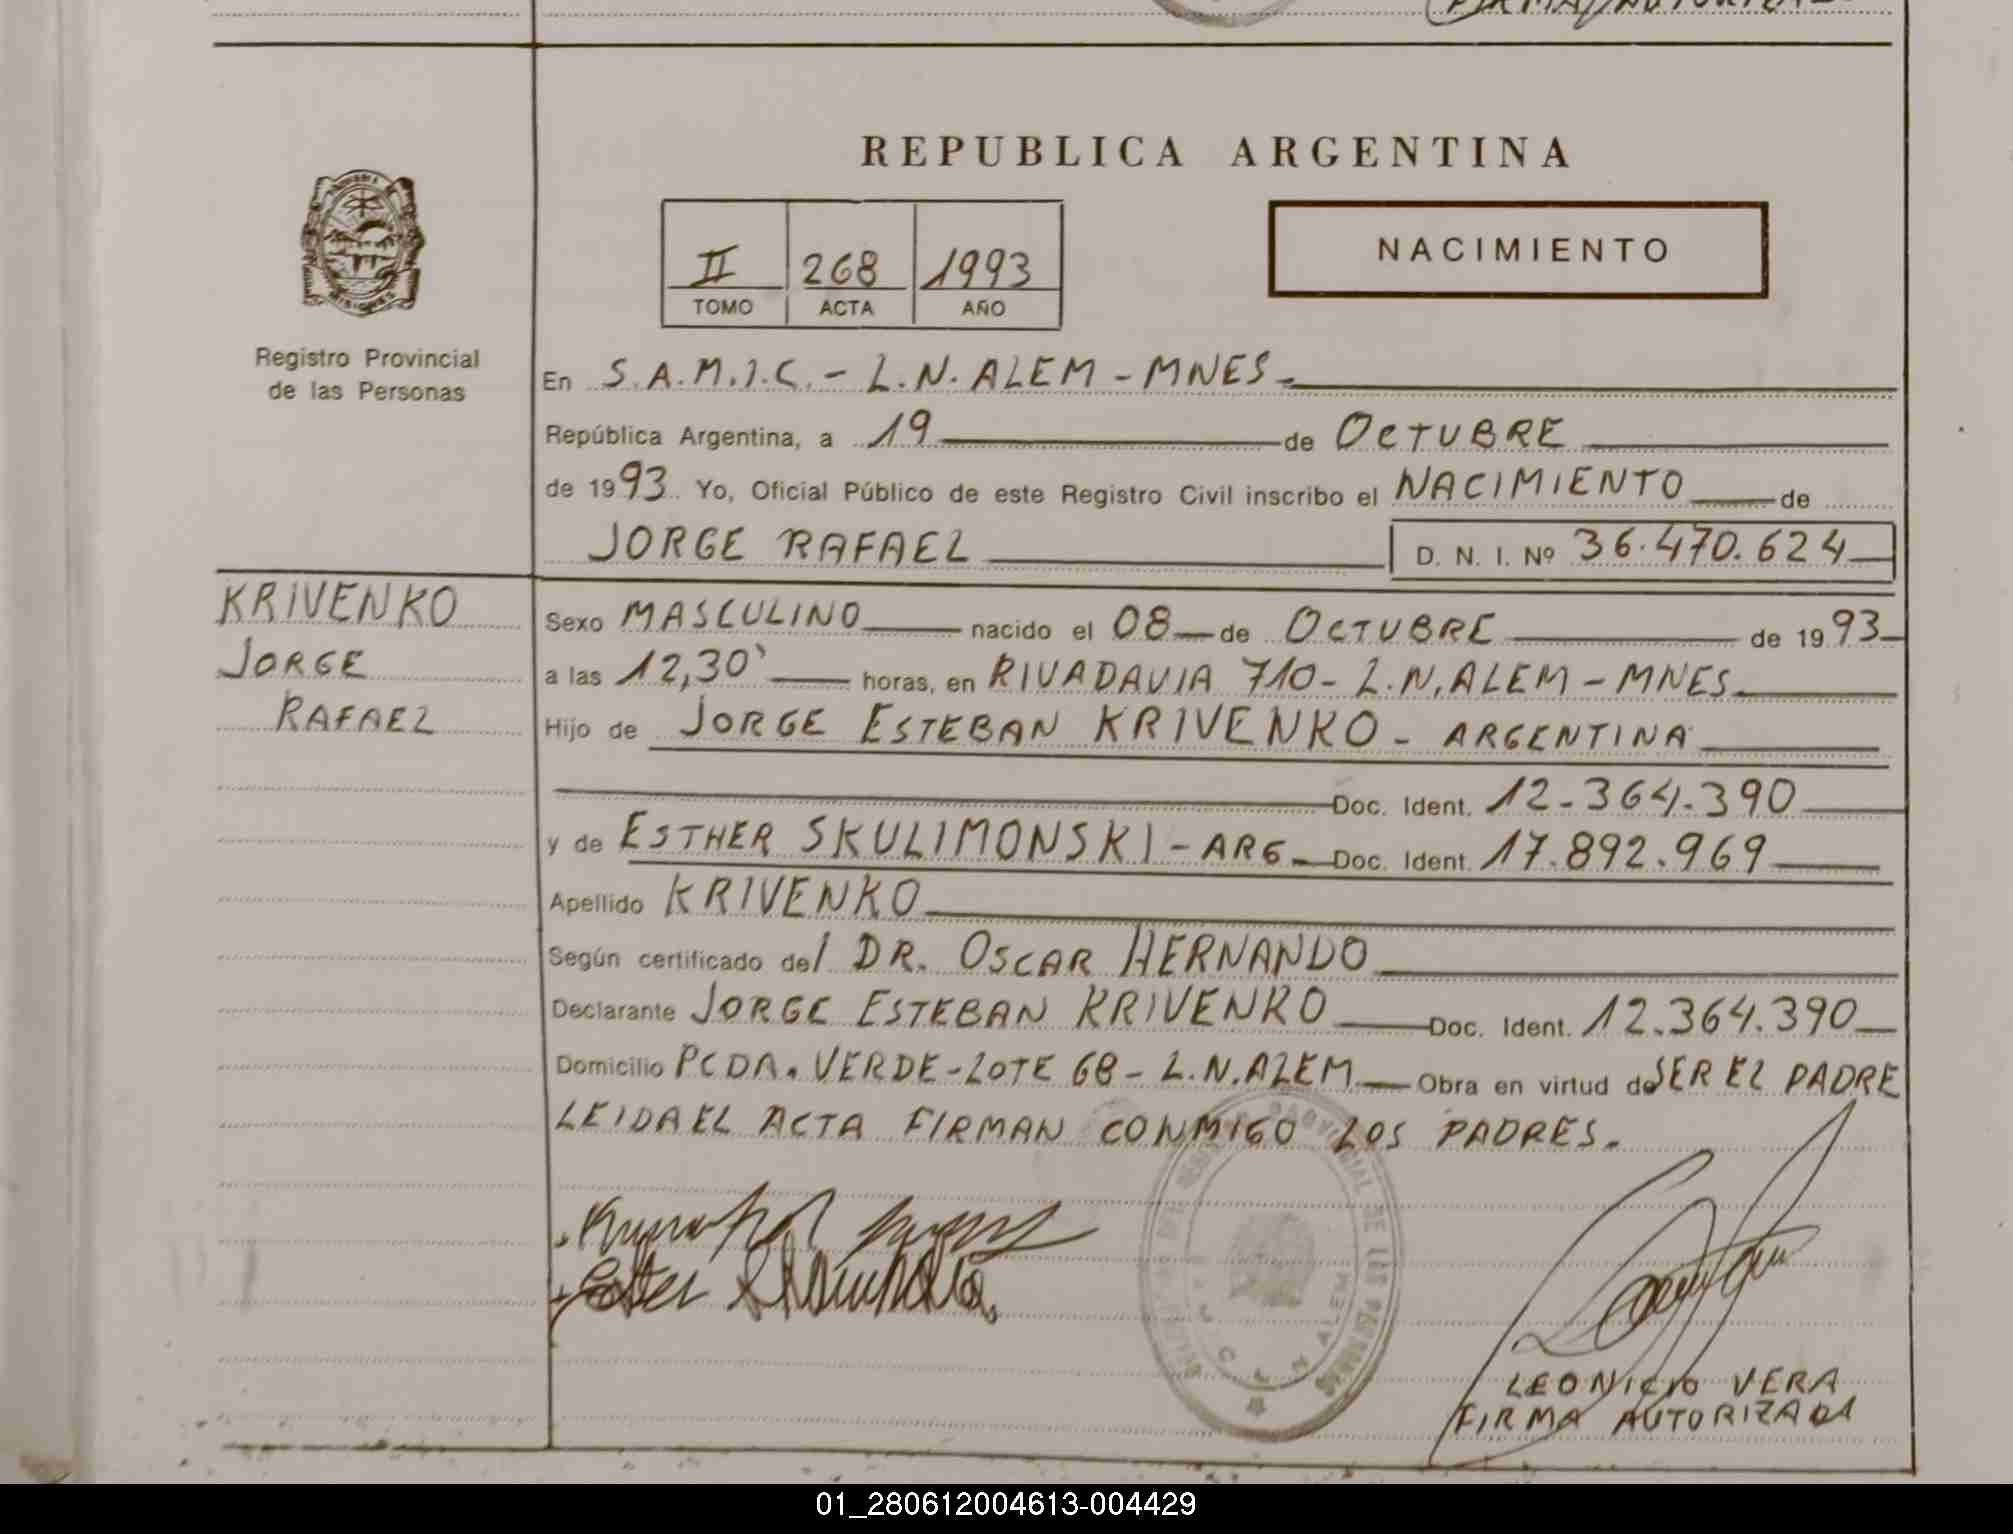 FIRMA AUTORIZADA
REPUBLICA ARGENTINA
II 268 1993
TOMO ACTA AÑO
NACIMIENTO
Registro Provincial
de las Personas
En S.A.M.I.C. - L.N. ALEM - MNES -
República Argentina, a 19 de OCTUBRE
de 1993. Yo, Oficial Público de este Registro Civil inscribo el NACIMIENTO de
JORGE RAFAEL D. N. I. Nº 36.470.624
KRIVENKO
JORGE
RAFAEL
Sexo MASCULINO nacido el 08 de OCTUBRE de 1993
a las 12,30' horas, en RIVADAVIA 710 - L.N. ALEM - MNES.
Hijo de JORGE ESTEBAN KRIVENKO - ARGENTINA
Doc. Ident. 12.364.390
y de ESTHER SKULIMONSKI - ARG - Doc. Ident. 17.892.969
Apellido KRIVENKO
Según certificado del DR. OSCAR HERNANDO
Declarante JORGE ESTEBAN KRIVENKO Doc. Ident. 12.364.390
Domicilio PCDA. VERDE - LOTE 68 - L.N. ALEM Obra en virtud de SER EL PADRE
LEIDA EL ACTA FIRMAN CONMIGO LOS PADRES.
REGISTRO PROVINCIAL DE LAS PERSONAS
ALEM
LEONICIO VERA
FIRMA AUTORIZADA
01_280612004613-004429